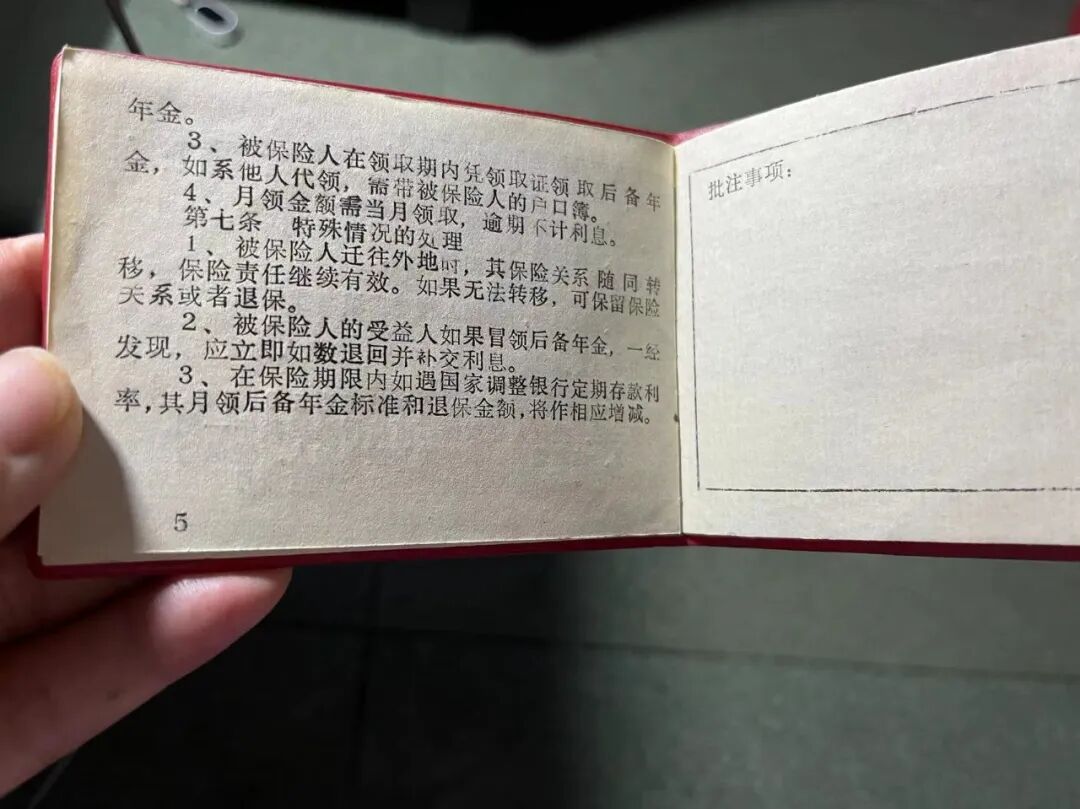 年金。
3、被保险人在领取期内凭领取证领取后备年
金，如系他人代领，需带被保险人的户口簿。
4、月领金额需当月领取，逾期不计利息。
第七条　特殊情况的处理
1、被保险人迁往外地时，其保险关系随同转
移，保险责任继续有效。如果无法转移，可保留保险
关系或者退保。
2、被保险人的受益人如果冒领后备年金，一经
发现，应立即如数退回并补交利息。
3、在保险期限内如遇国家调整银行定期存款利
率，其月领后备年金标准和退保金额，将作相应增减。
5
批注事项：